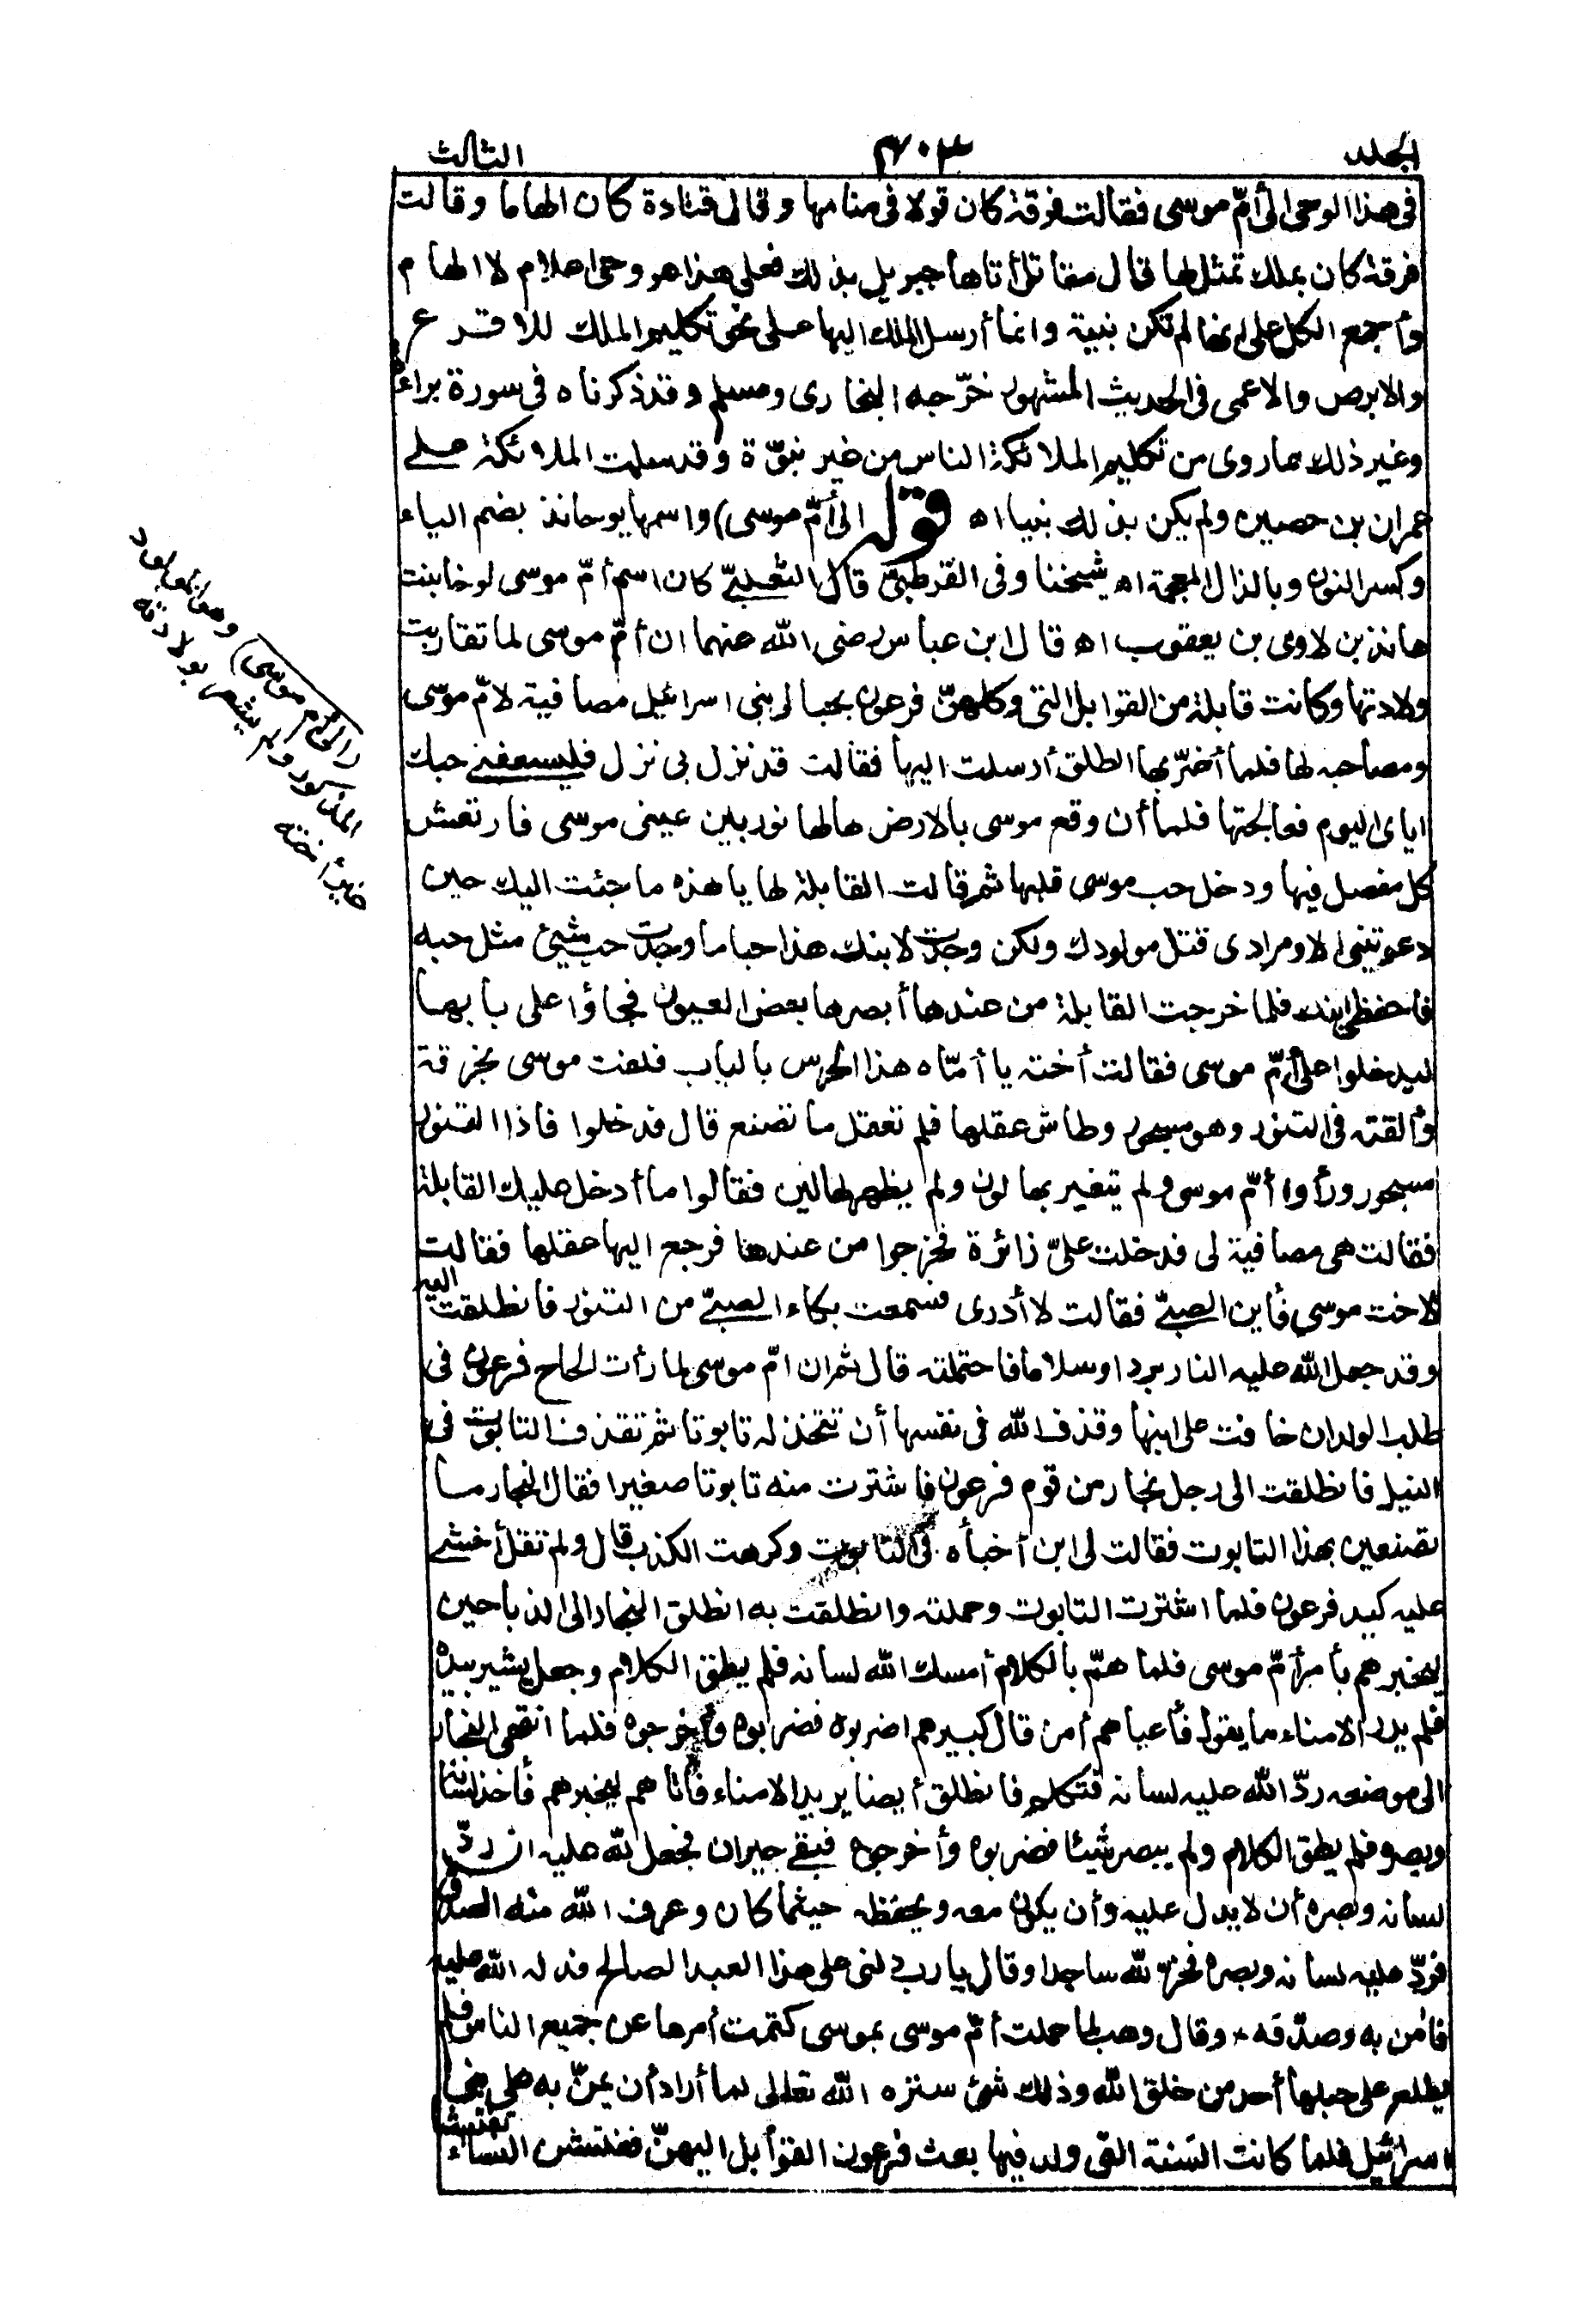 المجلد ٣٠٧ الثالث
فى هذا الوحى الى أمّ موسى فقالت فرقة كان قولا فى منامها وقال قتادة كان الهاما وقالت
فرقة كان بملك تمثل لها قال مقاتل أتاها جبريل بذلك فعلى هذا هو وحى اعلام لا الهام
وأجمع الكل على انها لم تكن نبية وانما أرسل الملك اليها على نحو تكليم الملك للاقرع
والابرص والاعمى فى الحديث المشهور خرّجه البخارى ومسلم وقد ذكرناه فى سورة براءة
وغير ذلك مما روى من تكليم الملائكة الناس من غير نبوّة وقد سلمت الملائكة على
عمران بن حصين ولم يكن بذلك نبيا اه قوله الى أمّ موسى) واسمها يوحانذ بضم الياء
وكسر النون وبالذال المعجمة اه شيخنا وفى القرطبىّ قال الثعلبىّ كان اسم أمّ موسى لوخا بنت
هاند بن لاوى بن يعقوب اه قال ابن عباس رضى الله عنهما ان أمّ موسى لما تقاربت
ولادتها وكانت قابلة من القوابل التى وكلهنّ فرعون بحبالى بنى اسرائيل مصافية لامّ موسى
ومصاحبه لها فلما أضرّ بها الطلق أرسلت اليها فقالت قد نزل بى نزل فليسعفنى حبك
اياى اليوم فعالجتها فلما أن وقع موسى بالارض هالها نور بين عينى موسى فارتعش
كل مفصل فيها ودخل حب موسى قلبها ثم قالت القابلة لها يا هذه ما جئت اليك حين
دعوتينى الا ومرادى قتل مولودك ولكن وجدت لابنك هذا حبا ما وجدت حب شيئ مثل حبه
فاحفظى ابنك فلما خرجت القابلة من عندها أبصرها بعض العيون فجاؤا على بابها
ليدخلوا على أمّ موسى فقالت أخته يا أمّاه هذا الحرس بالباب فلفت موسى بخرقة
وألقته فى التنور وهو مسجور وطاش عقلها فلم تعقل ما تصنع قال فدخلوا فاذا التنور
مسجور ورأوا أمّ موسى ولم يتغير بها لون ولم يظهر لها لبن فقالوا ما أدخل عليك القابلة
فقالت هى مصافية لى فدخلت علىّ زائرة فخرجوا من عندها فرجع اليها عقلها فقالت
لاخت موسى فأين الصبىّ فقالت لا أدرى فسمعت بكاء الصبىّ من التنور فانطلقت اليه
وقد جعل الله عليه النار بردا وسلاما فاحتملته قال ثم ان امّ موسى لما رأت الحاح فرعون فى
طلب الولدان خافت على ابنها وقذف الله فى نفسها أن تتخذ له تابوتا ثم تقذف التابوت فى
النيل فانطلقت الى رجل نجار من قوم فرعون فاشترت منه تابوتا صغيرا فقال النجار ما
تصنعين بهذا التابوت فقالت لى ابن أخبأه فى التابوت وكرهت الكذب قال ولم تقل أخشى
عليه كيد فرعون فلما اشترت التابوت وحملته وانطلقت به انطلق النجار الى الذباحين
ليخبرهم بأمر أمّ موسى فلما همّ بالكلام أمسك الله لسانه فلم يطق الكلام وجعل يشير بيده
فلم يدر الامناء ما يقول فأعياهم أمره قال كبيرهم اضربوه فضربوه وأخرجوه فلما انتهى النجار
الى موضعه ردّ الله عليه لسانه فتكلم فانطلق أيضا يريد الامناء فأتاهم ليخبرهم فأخذ لسانه
وبصره فلم يطق الكلام ولم يبصر شيئا فضربوه وأخرجوه فبقى حيران فجعل لله عليه ان ردّ
لسانه وبصره أن لا يدل عليه وأن يكون معه ويحفظه حيثما كان وعرف الله منه الصدق
فردّ عليه لسانه وبصره فخرّ لله ساجدا وقال يا رب دلنى على هذا العبد الصالح فدله الله عليه
فآمن به وصدّقه * وقال وهب لما حملت أمّ موسى بموسى كتمت أمرها عن جميع الناس فلم
يطلع على حبلها أحد من خلق الله وذلك شئ ستره الله تعالى لما أراد أن يمنّ به على بنى
اسرائيل فلما كانت السنة التى ولد فيها بعث فرعون القوابل اليهنّ ففتشن النساء تفتيشا
(الى أم موسى) وهو المولود
المذكور ولم يشعر بولادته
غير أخته